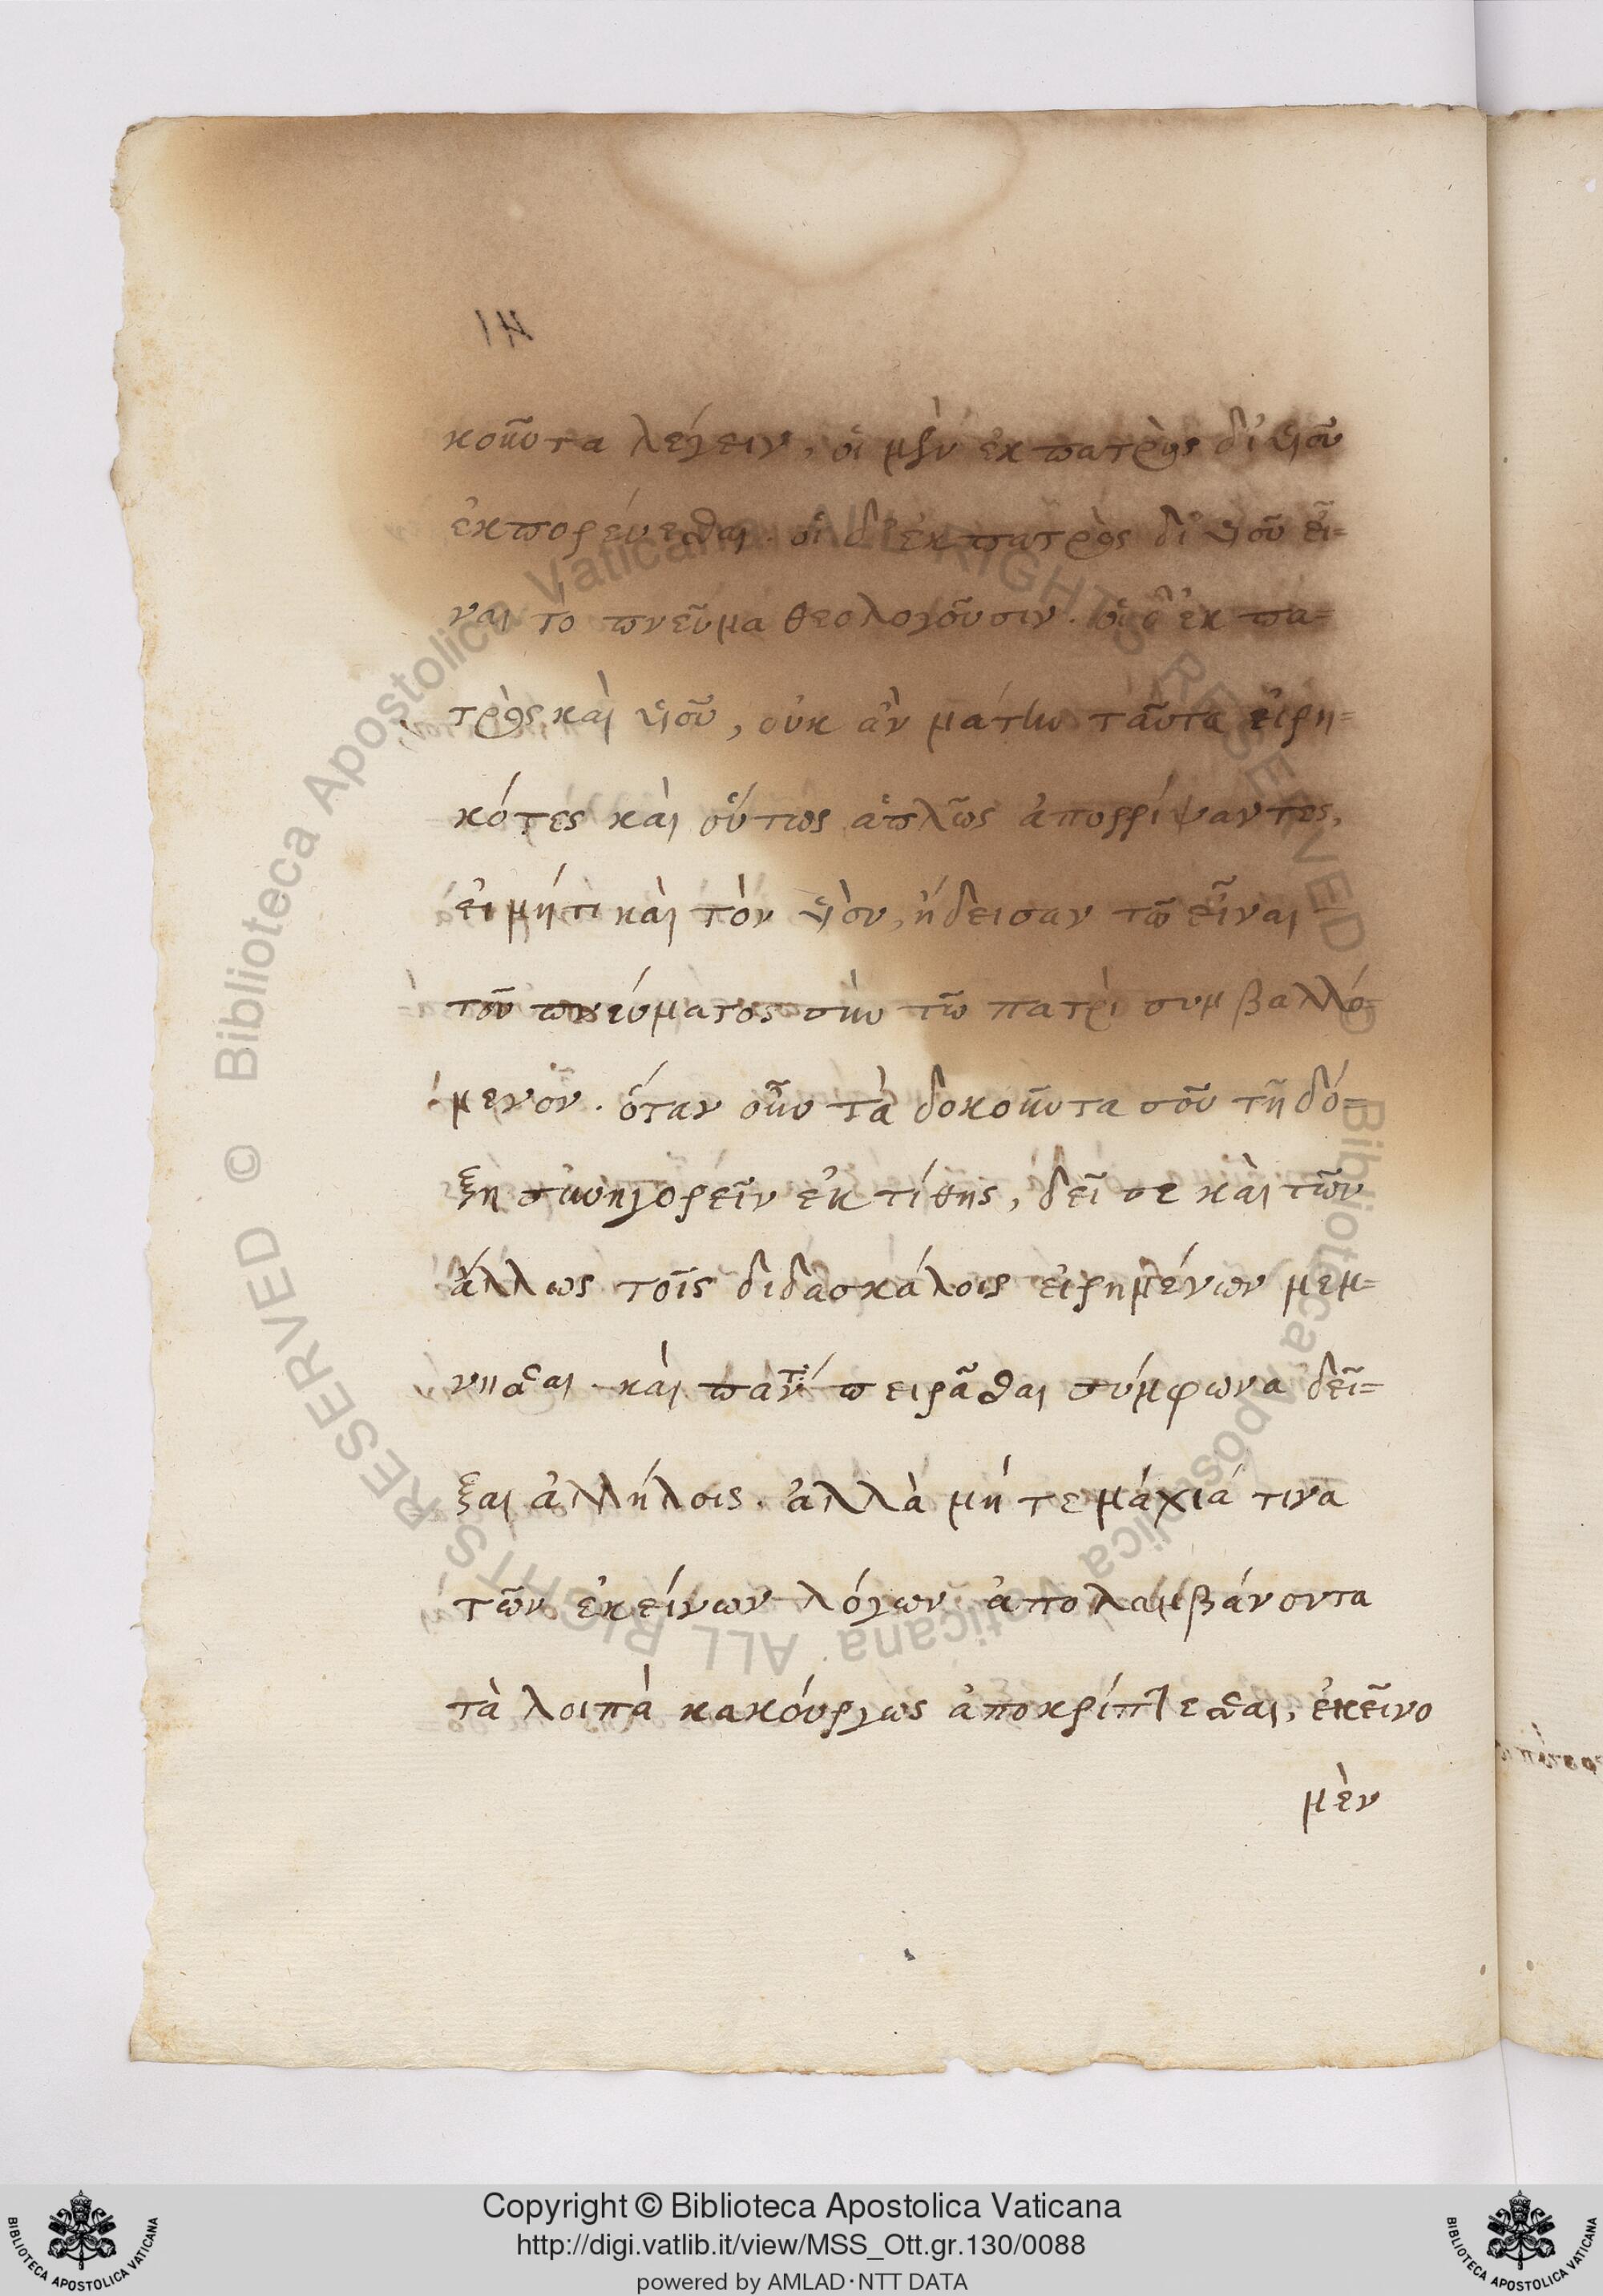 κοῦντα λέγειν, οἱ μὲν ἐκ πατρὸς δι' υἱοῦ
ἐκπορεύεσθαι. οἱ δ' ἐκ πατρὸς δι' υἱοῦ εἶ=
ναι τὸ πνεῦμα θεολογοῦσιν. οἱ δ' ἐκ πα=
τρὸς καὶ υἱοῦ, οὐκ ἂν μάτην ταῦτα εἰρη=
κότες καὶ οὕτως ἁπλῶς ἀπορρίψαντες,
εἰ μήτι καὶ τὸν υἱὸν, ἤδεισαν τῶ εἶναι
τοῦ πνεύματος σὺν τῶ πατρὶ συμβαλλό=
μενον. ὅταν οὖν τὰ δοκοῦντα σοῦ τῆ δό=
ξη συνηγορεῖν ἐκτίθης, δεῖ σε καὶ τῶν
ἄλλως τοῖς διδασκάλοις εἰρημένων μεμ=
νῆσθαι καὶ πειρᾶσθαι σύμφωνα δεῖ=
ξαι ἀλλήλοις. ἀλλὰ μή τεμάχιά τινα
τῶν ἐκείνων λόγων ἀπολαμβάνοντα
τὰ λοιπὰ κακούργως ἀποκρίπτεσθαι, ἐκεῖνο
μὲν
Copyright © Biblioteca Apostolica Vaticana
http://digi.vatlib.it/view/MSS_Ott.gr.130/0088
powered by AMLAD·NTT DATA
BIBLIOTECA APOSTOLICA VATICANA
BIBLIOTECA APOSTOLICA VATICANA
© Biblioteca Apostolica Vaticana ALL RIGHTS RESERVED © Biblioteca Apostolica Vaticana ALL RIGHTS RESERVED